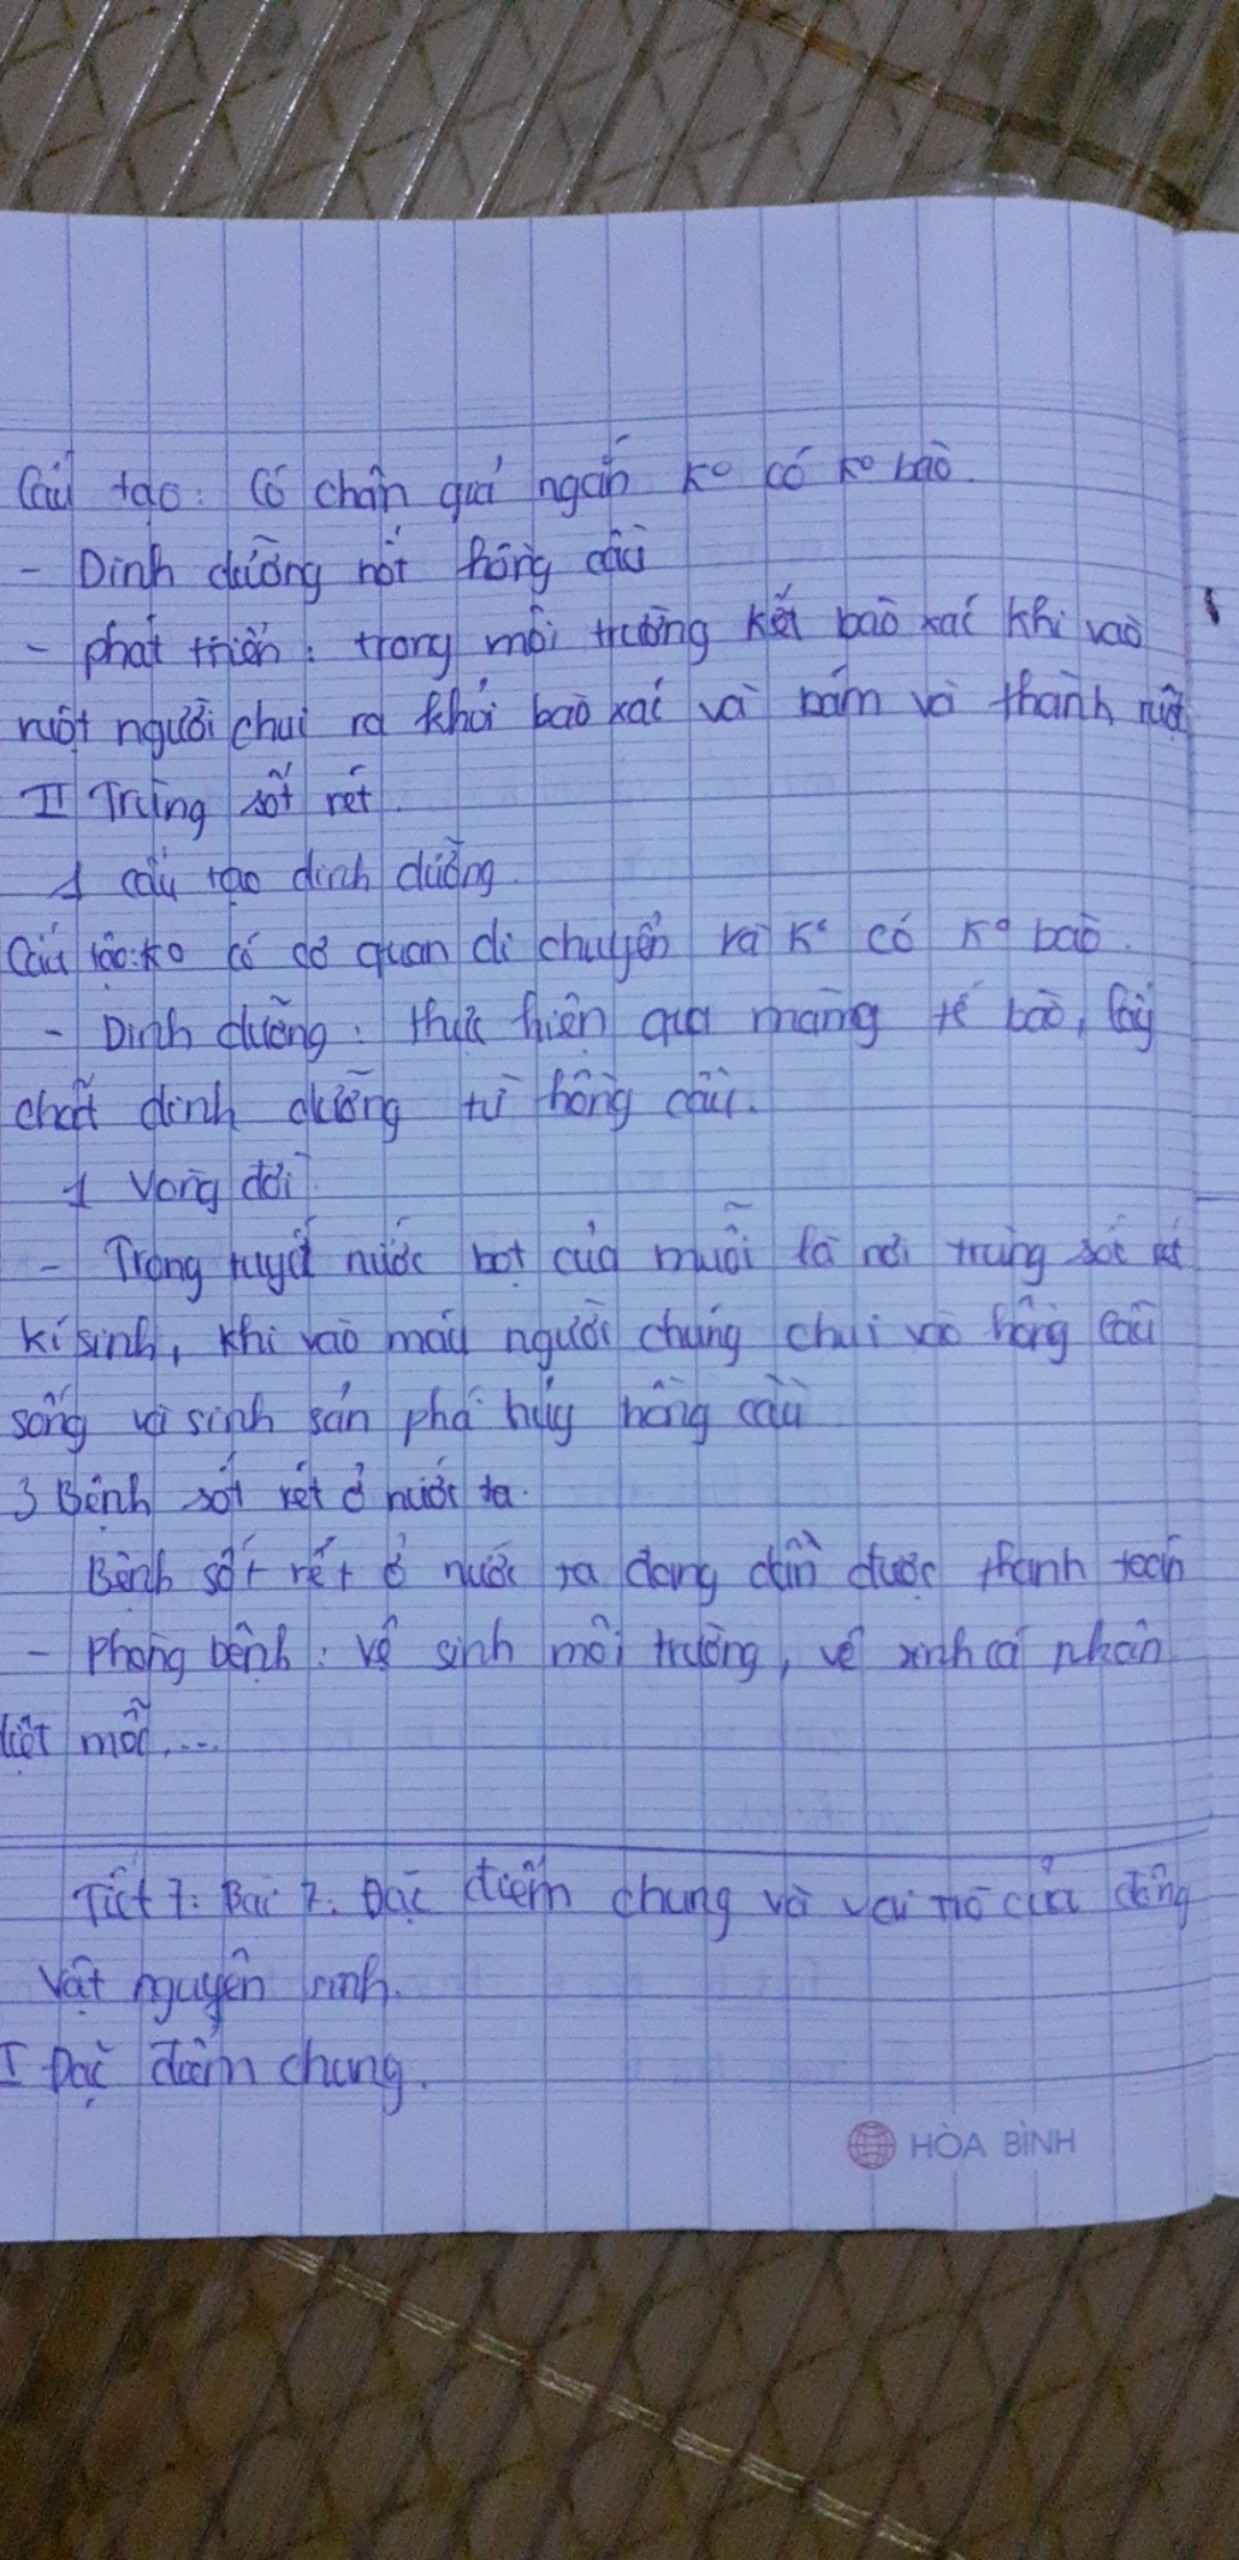 Cấu tạo: Có chân giả ngắn ko có ko bào.
- Dinh dưỡng nốt hồng cầu
- phát triển: trong môi trường kết bào xác khi vào
ruột người chui ra khỏi bào xác và bám và thành ruột
II Trùng sốt rét.
1 cấu tạo dinh dưỡng.
Cấu tạo: ko có cơ quan di chuyển và ko có ko bào.
- Dinh dưỡng: thực hiện qua màng tế bào, lấy
chất dinh dưỡng từ hồng cầu.
1 Vòng đời
- Trong tuyến nước bọt của muỗi là nơi trùng sốt rét
kí sinh, khi vào máu người chúng chui vào hồng cầu
sống và sinh sản phá hủy hồng cầu
3 Bệnh sốt rét ở nước ta.
Bệnh sốt rét ở nước ta đang dần được thanh toán
- phòng bệnh: vệ sinh môi trường, vệ xinh cá nhân
diệt mỗi,...
Tiết 7: Bài 7: Đặc điểm chung và vai trò của động
vật nguyên sinh.
I Đặc điểm chung.
HÒA BÌNH